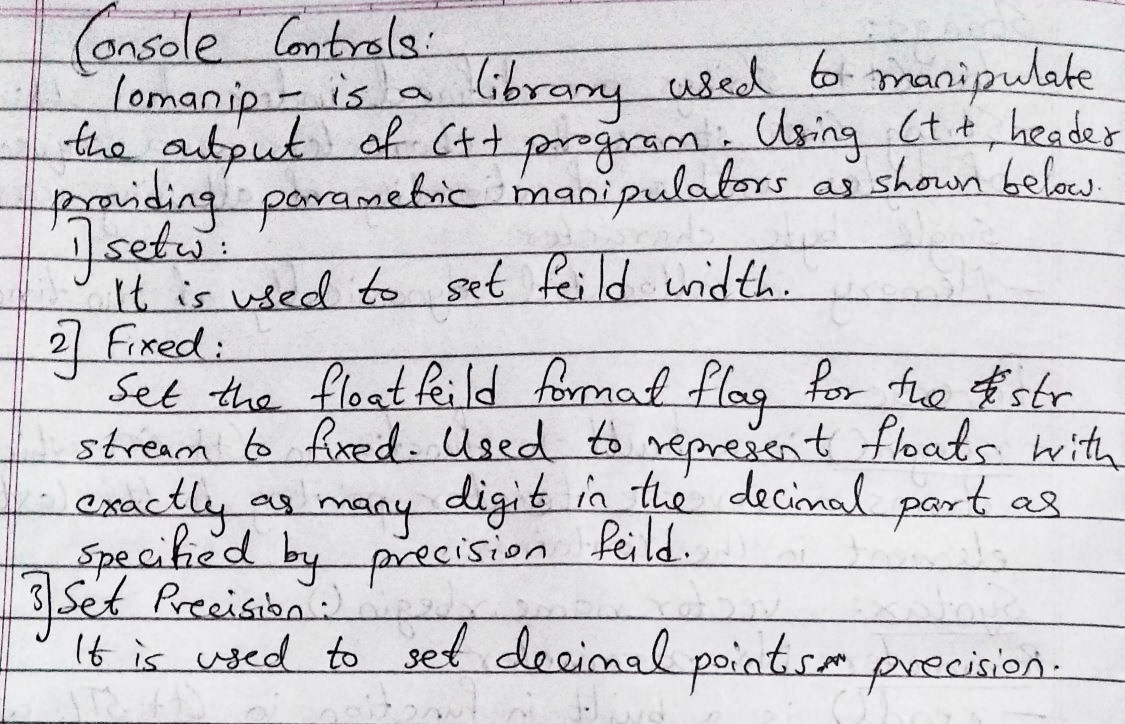 Console Controls:
Iomanip - is a library used to manipulate
the output of C++ program. Using C++, header
providing parametric manipulators as shown below.
1] setw:
It is used to set feild width.
2] Fixed:
Set the floatfeild format flag for the str
stream to fixed. Used to represent floats with
exactly as many digit in the decimal part as
specified by precision feild.
3] Set Precision:
It is used to set decimal points precision.